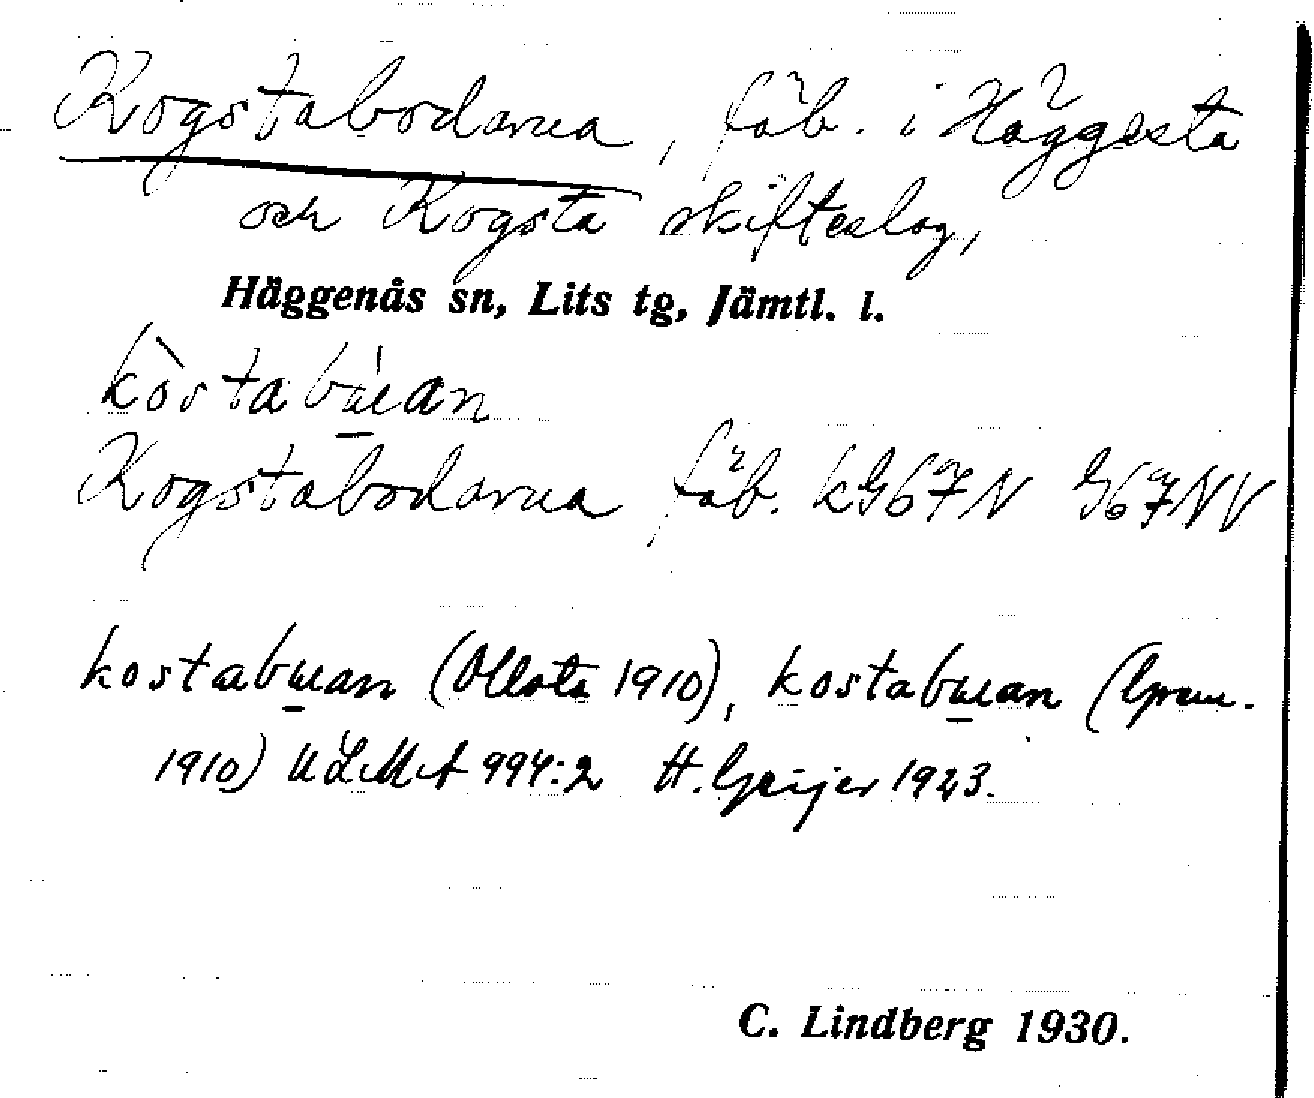 Kogstabodarna, fäb. i Häggesta
och Kogsta skifteslag,
Häggenås sn, Lits tg, Jämtl. l.
kòstabu̲án
Kogstabodarna fäb. kG67N G67NV
kostabu̲an (Ollsta 1910), kostabu̲an (Gram.
1910) ULMA 994:2 H. Geijer 1923.
C. Lindberg 1930.